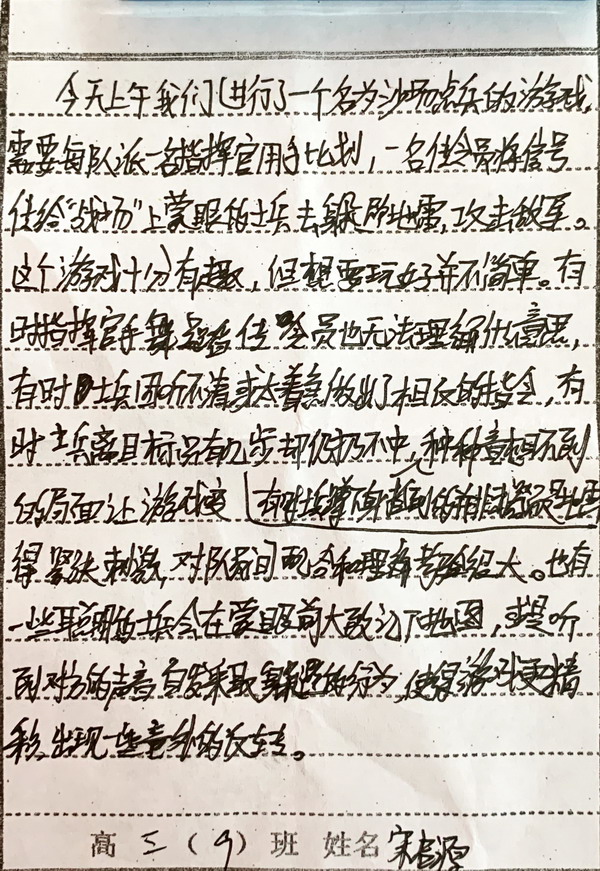 今天上午我们进行了一个名为沙场点兵的游戏,
需要每队派一名指挥官用手比划,一名传令员将信号
传给“战场”上蒙眼的士兵去躲避地雷,攻击敌军。
这个游戏十分有趣,但想要玩好并不简单。有
时指挥官手舞足蹈传令员也无法理解什么意思,
有时士兵因听不清或太着急做出了相反的指令,有
时士兵离目标只有几步却仍扔不中,种种意想不到
的局面让游戏变 有时士兵
得紧张刺激,对队员间配合和理解考验很大。也有
一些聪明的士兵会在蒙眼前大致记下地图,或是听
到对方的声音自发采取躲避的行为,使得游戏更精
彩,出现一些意外的反转。
高 三 ( 9 ) 班 姓名 宋 源